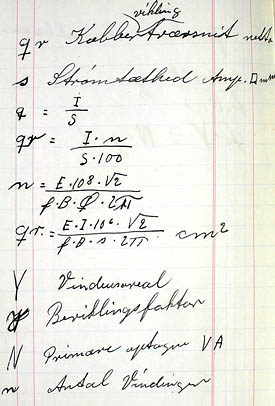 vikling
q r Kobber tværsnit netto
s Strømtæthed Amp. □mm
q = I / S
qr = I · n / S · 100
n = E · 10⁸ · √2 / f · B · Q · 2π
qr = E · I · 10⁶ · √2 / f · B · s · 2π cm²
Y Vinduesareal
Beviklingsfaktor
N Primære optagne VA
n Antal Vindinger